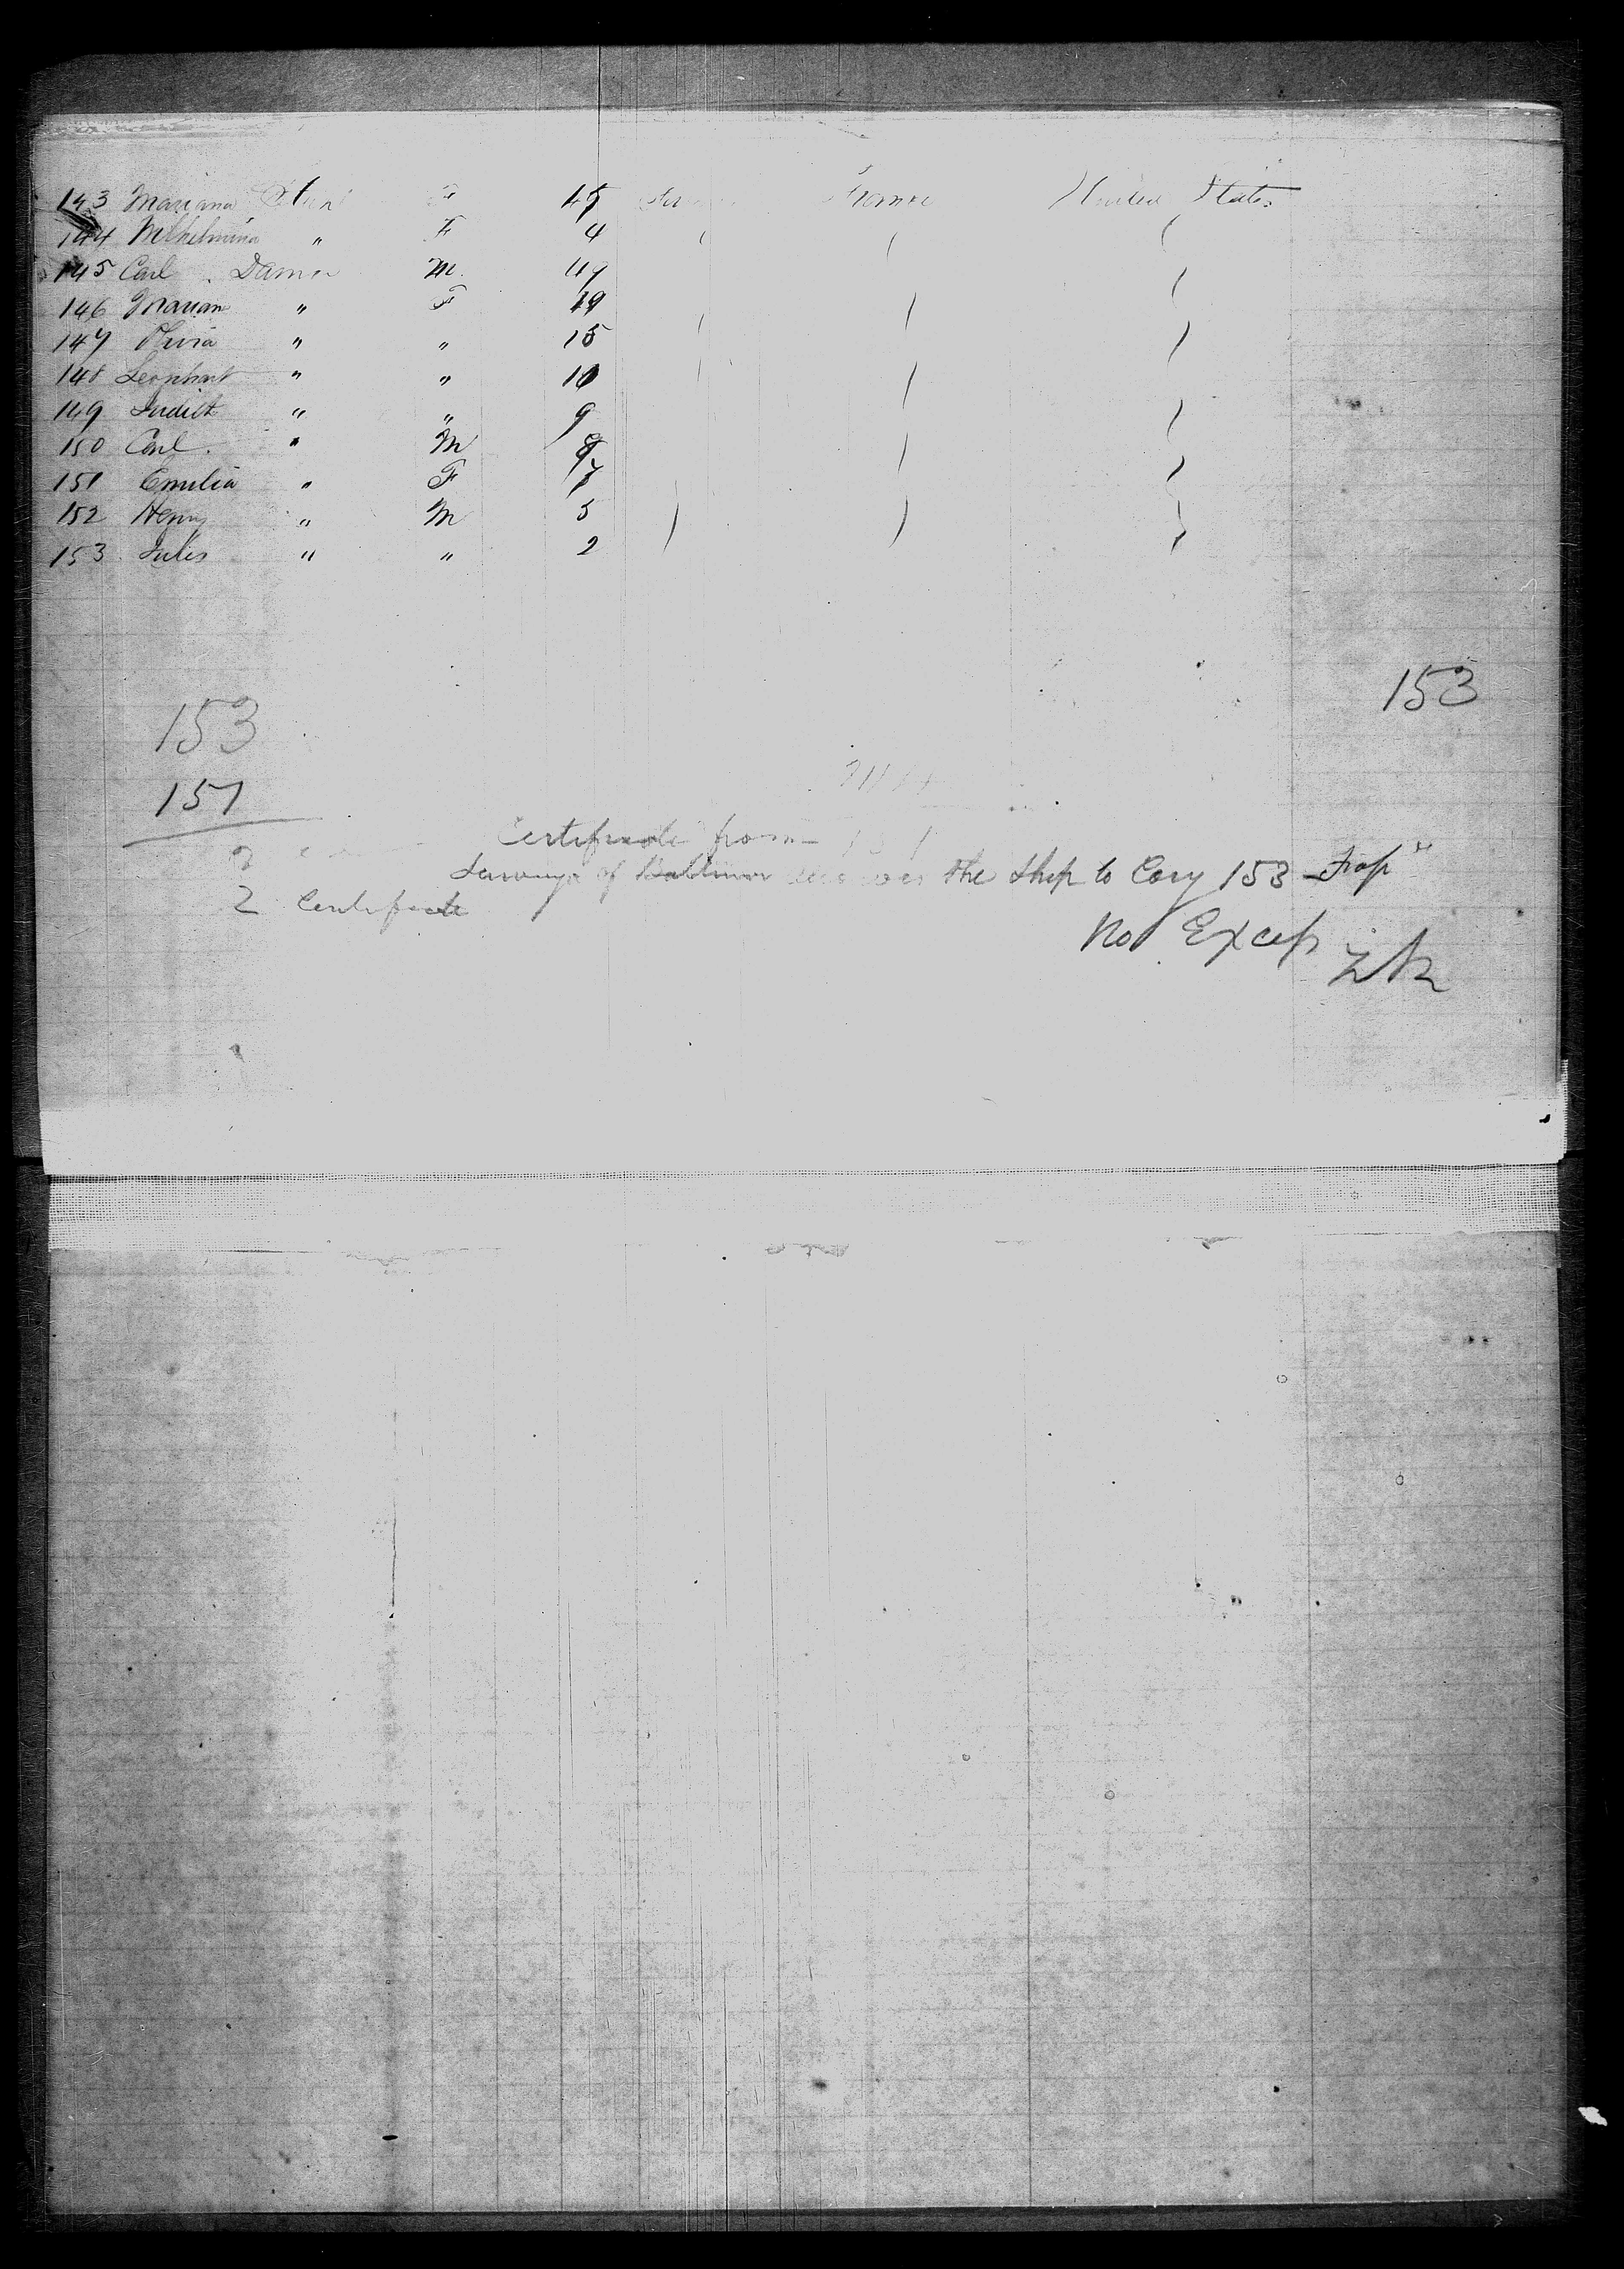 143 Mariana F 45 France United States
144 Wilhelmina " F 4
145 Carl Damm M. 47
146 Marian " F 19
147 Olivia " " 15
148 Leonhart " " 10
149 Judith " " 9
150 Carl. " M 8
151 Emilia " F 7
152 Henry " M 5
153 Jules " " 2
153
153
151
Certificate from 151
of Baltimore the Ship to Cary 153
2 Certificate
No Excess